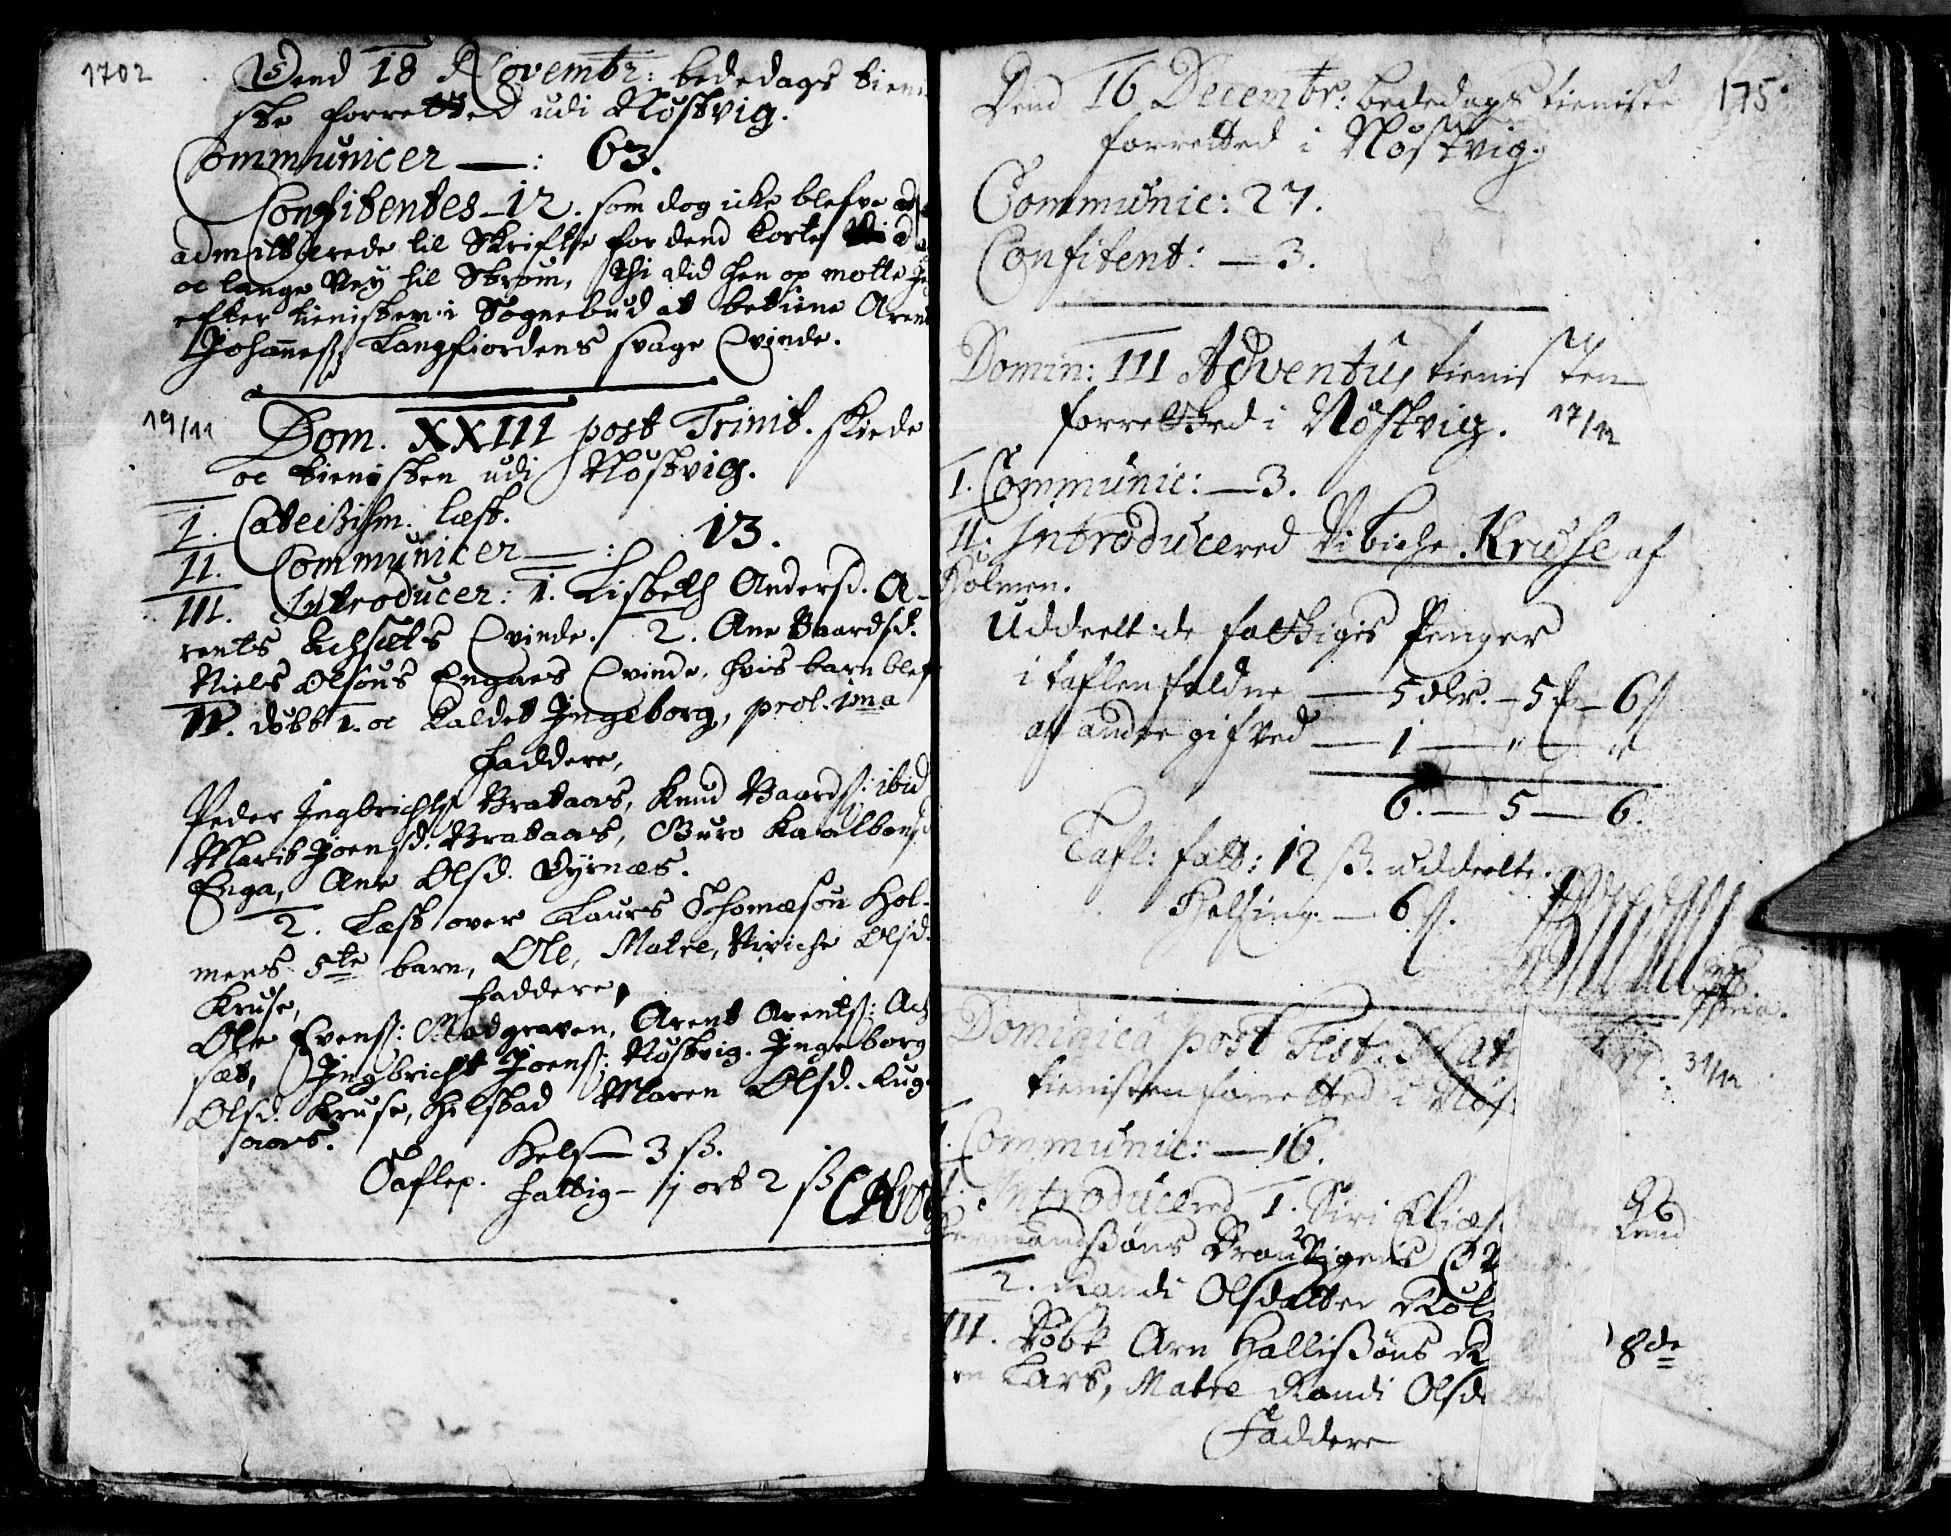 1702
Dend 18 Novembr: bededags tieni
ste forretted udi Nøstvig.
Communicer — : 63.
Confitentes – 12. som dog icke blefve
admitterede til Skrifte for dend korte
oc lange Vey til Strøm, thi alid hen op motte
efter tienisten i Sognebud at betiene Arent
Johanneß Langfiordens svage Qvinde.
19/11
Dom. XXIII post Trinit. skiede
oc tienisten udi Nøstvig.
I. Cateckism. læst.
II. Communicer — : 13.
III. Introducer: 1. Lisbeth Andersd. A-
rents Achsæts Qvinde. 2. Ane Baardsd.
Niels Olsøns Engaes Qvinde, hvis barn blef
IV. døbt 1. oc kaldet Ingeborg, prol. 1ma
Faddere,
Peder Ingbrichtß Brataas, Knud Baardß: ibid
Marit Joensd. Brataas, Guro
Enga, Ane Olsd. Dyrnæs.
2. Læst over Laurs Thomæsøn Hol-
mens 5te barn, Ole, Matre, Viviche Olsd.
Kruse, Faddere,
Ole Evenß: Madgraven, Arent Arentß: Ach
sæt, Ingbricht Joenß: Nøstvig. Ingeborg
Olsd. Kruse, Maren Olsd. Rug-
aas.
Hels — 3 ß.
Taflep. fattig – j ort 2 ß
175
Dend 16 Decembr: bededags tienisten
forretted i Nøstvig.
Communic: 27.
Confitent: — 3.
Domin: III Adventus tienisten
forretted i Nøstvig. 17/12
I. Communic: — 3.
II. Introducered Vibiche Kruse af
Holmen.
Uddeelt de fattiges Penger
i taflen faldne — 5 dlr. – 5 – 6 ß
af andre gifved — 1 — " — "
6. — 5 — 6.
Tafl: fatt: 12 ß. uddeelt.
Helsing. — 6 ß.
Dominica post Fest: Nat
31/12
tienisten forretted i Nøs
I. Communic: — 16.
Introducered 1. Siri
2. Randi Olsdatter
III. Døbt Arn Hallißøns
8de
en Lars, Matre Randi Olsd
Faddere